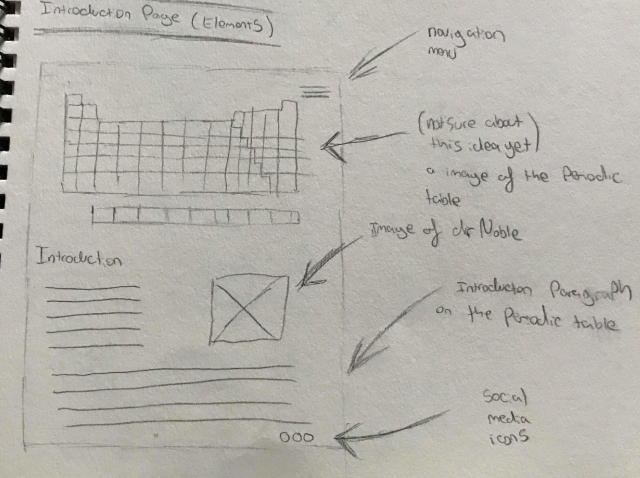 Introduction Page (Elements)
navigation
menu
(not sure about
this idea yet)
a image of the Periodic
table
Image of dr Noble
Introduction
Introducton Paragraph
on the Periodic table
Social
media
icons